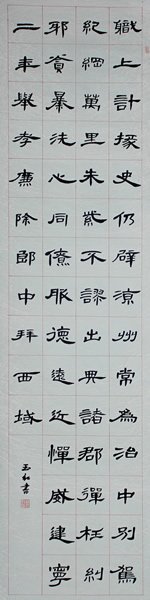 職上計掾史仍辟涼州常為治中別駕
紀綱萬里朱紫不謬出典諸郡彈枉糾
邪貪暴洗心同僚服德遠近憚威建寧
二年舉孝廉除郎中拜西域
玉紅書